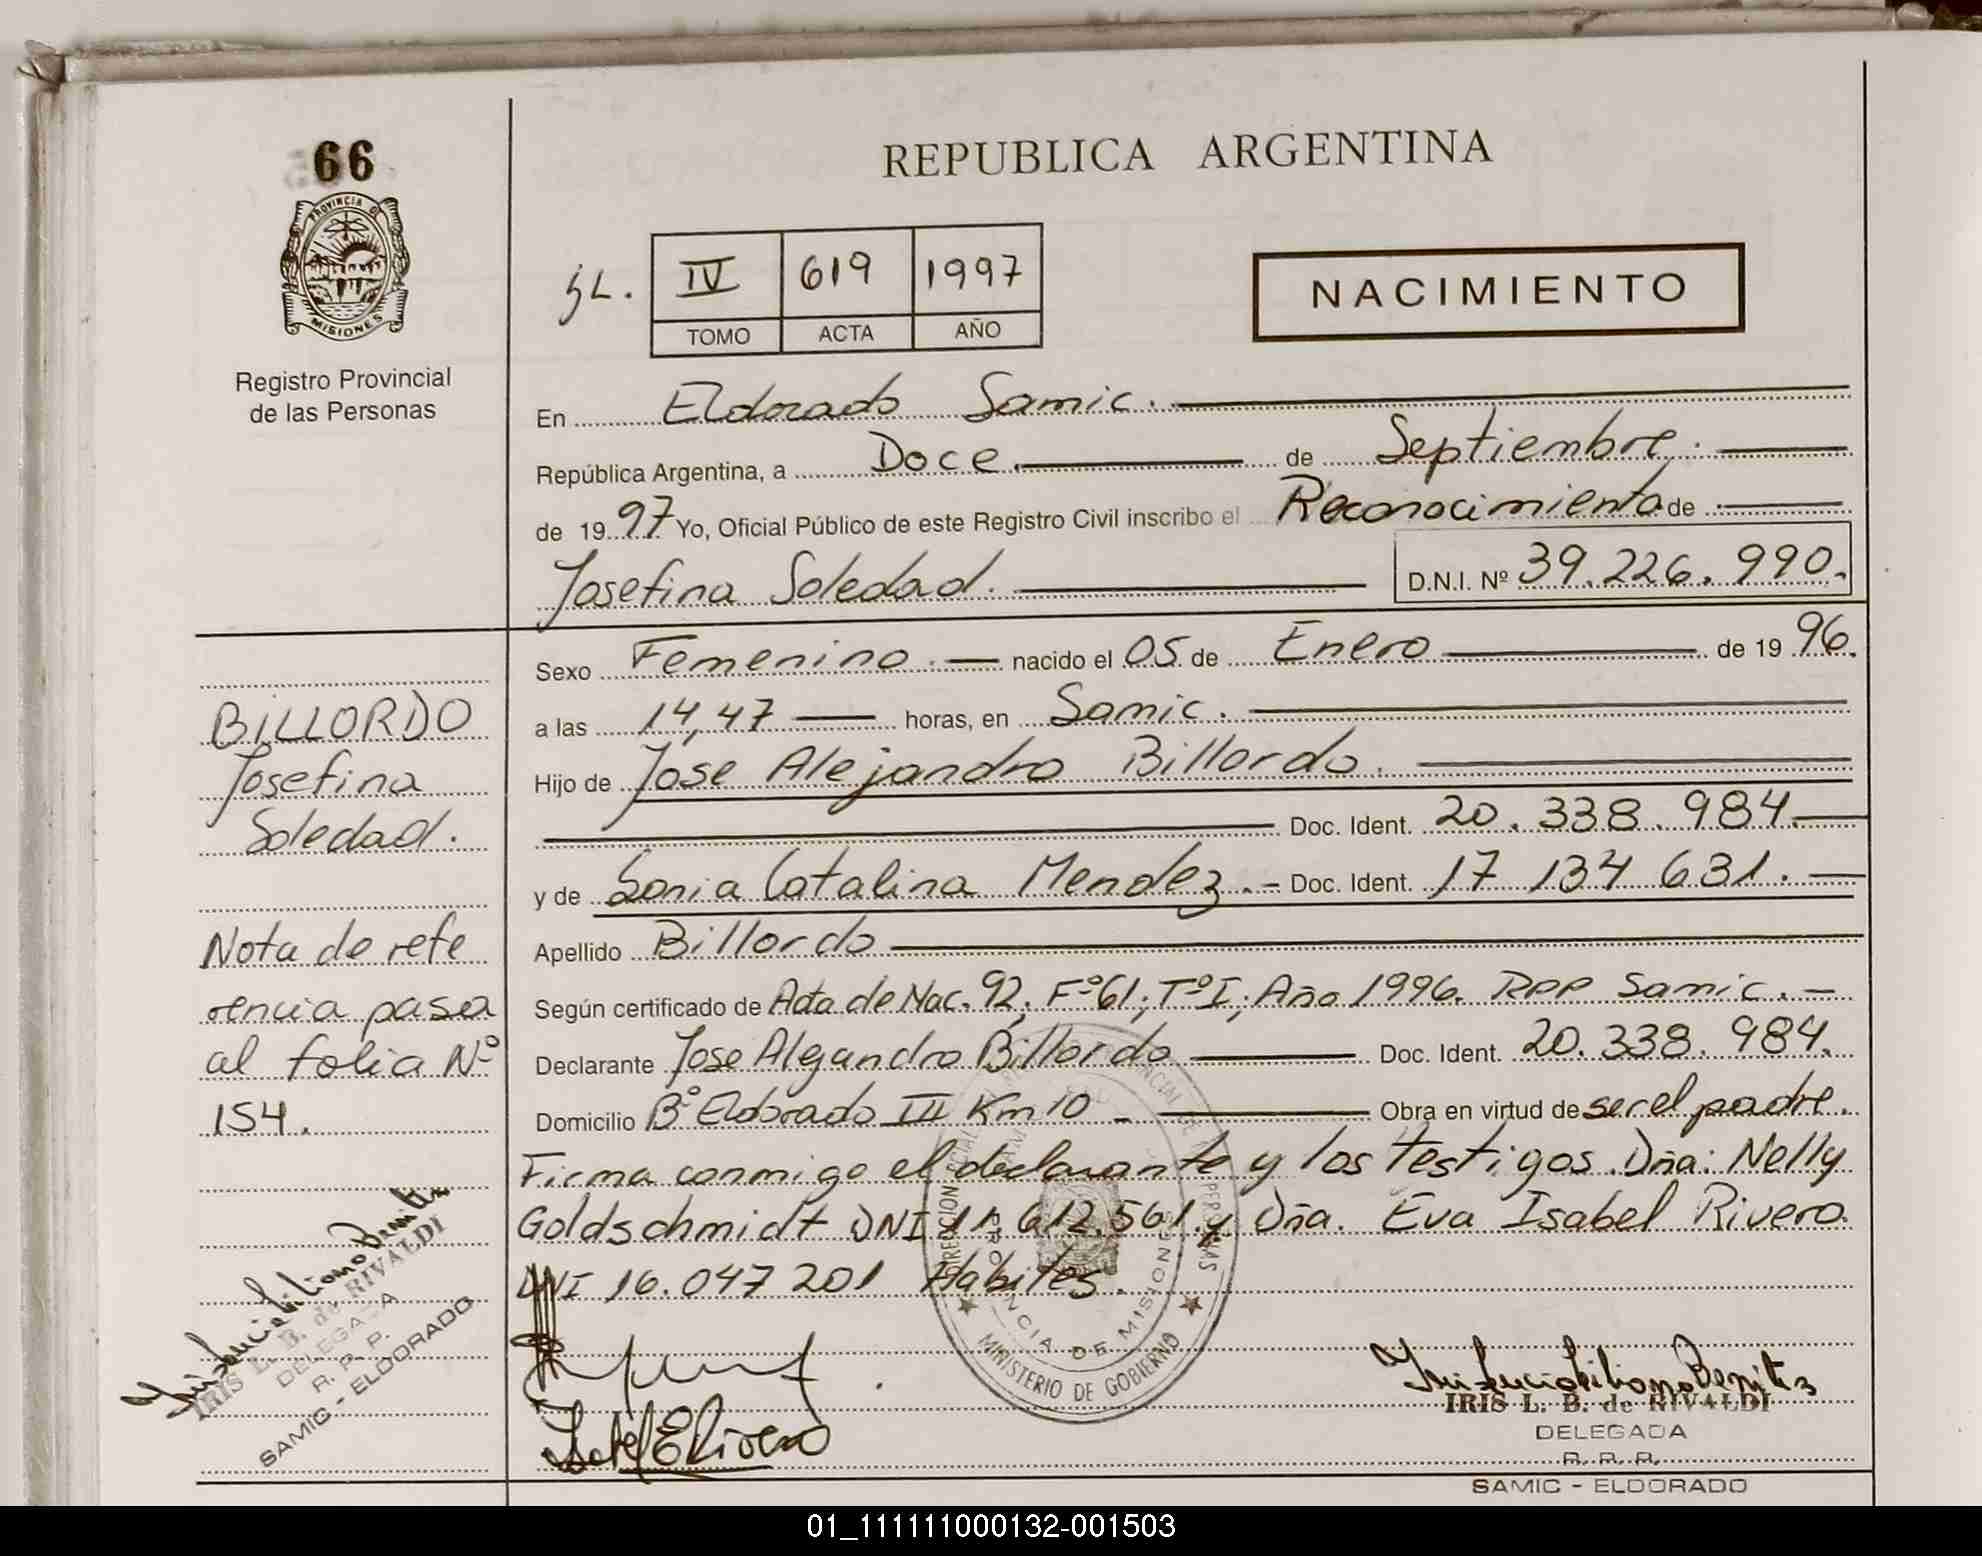 66
PROVINCIA DE
MISIONES
Registro Provincial
de las Personas
REPUBLICA ARGENTINA
IV 619 1997
TOMO ACTA AÑO
NACIMIENTO
En Eldorado Samic.
República Argentina, a Doce. de Septiembre.
de 1997 Yo, Oficial Público de este Registro Civil inscribo el Reconocimiento de
Josefina Soledad. D.N.I. Nº 39.226.990.
Sexo Femenino. nacido el 05 de Enero de 1996.
a las 14,47 horas, en Samic.
Hijo de Jose Alejandro Billordo.
Doc. Ident. 20.338.984.
y de Sonia Catalina Mendez. Doc. Ident. 17 134 631.
Apellido Billordo
Según certificado de Acta de Nac. 92, Fº61; TºI; Año 1996. RPP Samic.
Declarante Jose Alejandro Billordo Doc. Ident. 20.338.984.
Domicilio Bº Eldorado III Km 10 Obra en virtud de ser el padre.
Firma conmigo el declarante y los testigos. Dña: Nelly
Goldschmidt DNI 11.612.561. y Dña. Eva Isabel Rivero.
DNI 16.047 201 Habiles.
BILLORDO
Josefina
Soledad.
Nota de refe
rencia pasa
al folio Nº
154.
IRIS L. B. de RIVALDI
DELEGADA
R. P. P.
SAMIC - ELDORADO
PROVINCIA DE MISIONES
MINISTERIO DE GOBIERNO
IRIS L. B. de RIVALDI
DELEGADA
R. P. P.
SAMIC - ELDORADO
01_111111000132-001503